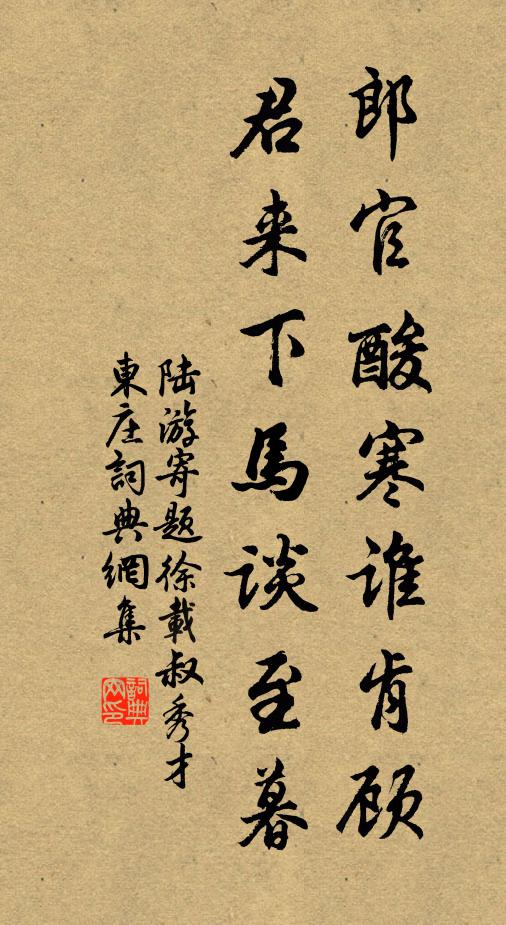 郎官酸寒谁肯顾
君来下馬谈至暮
陆游寄题徐載叔秀才
東庄詞典網集
詞典网印